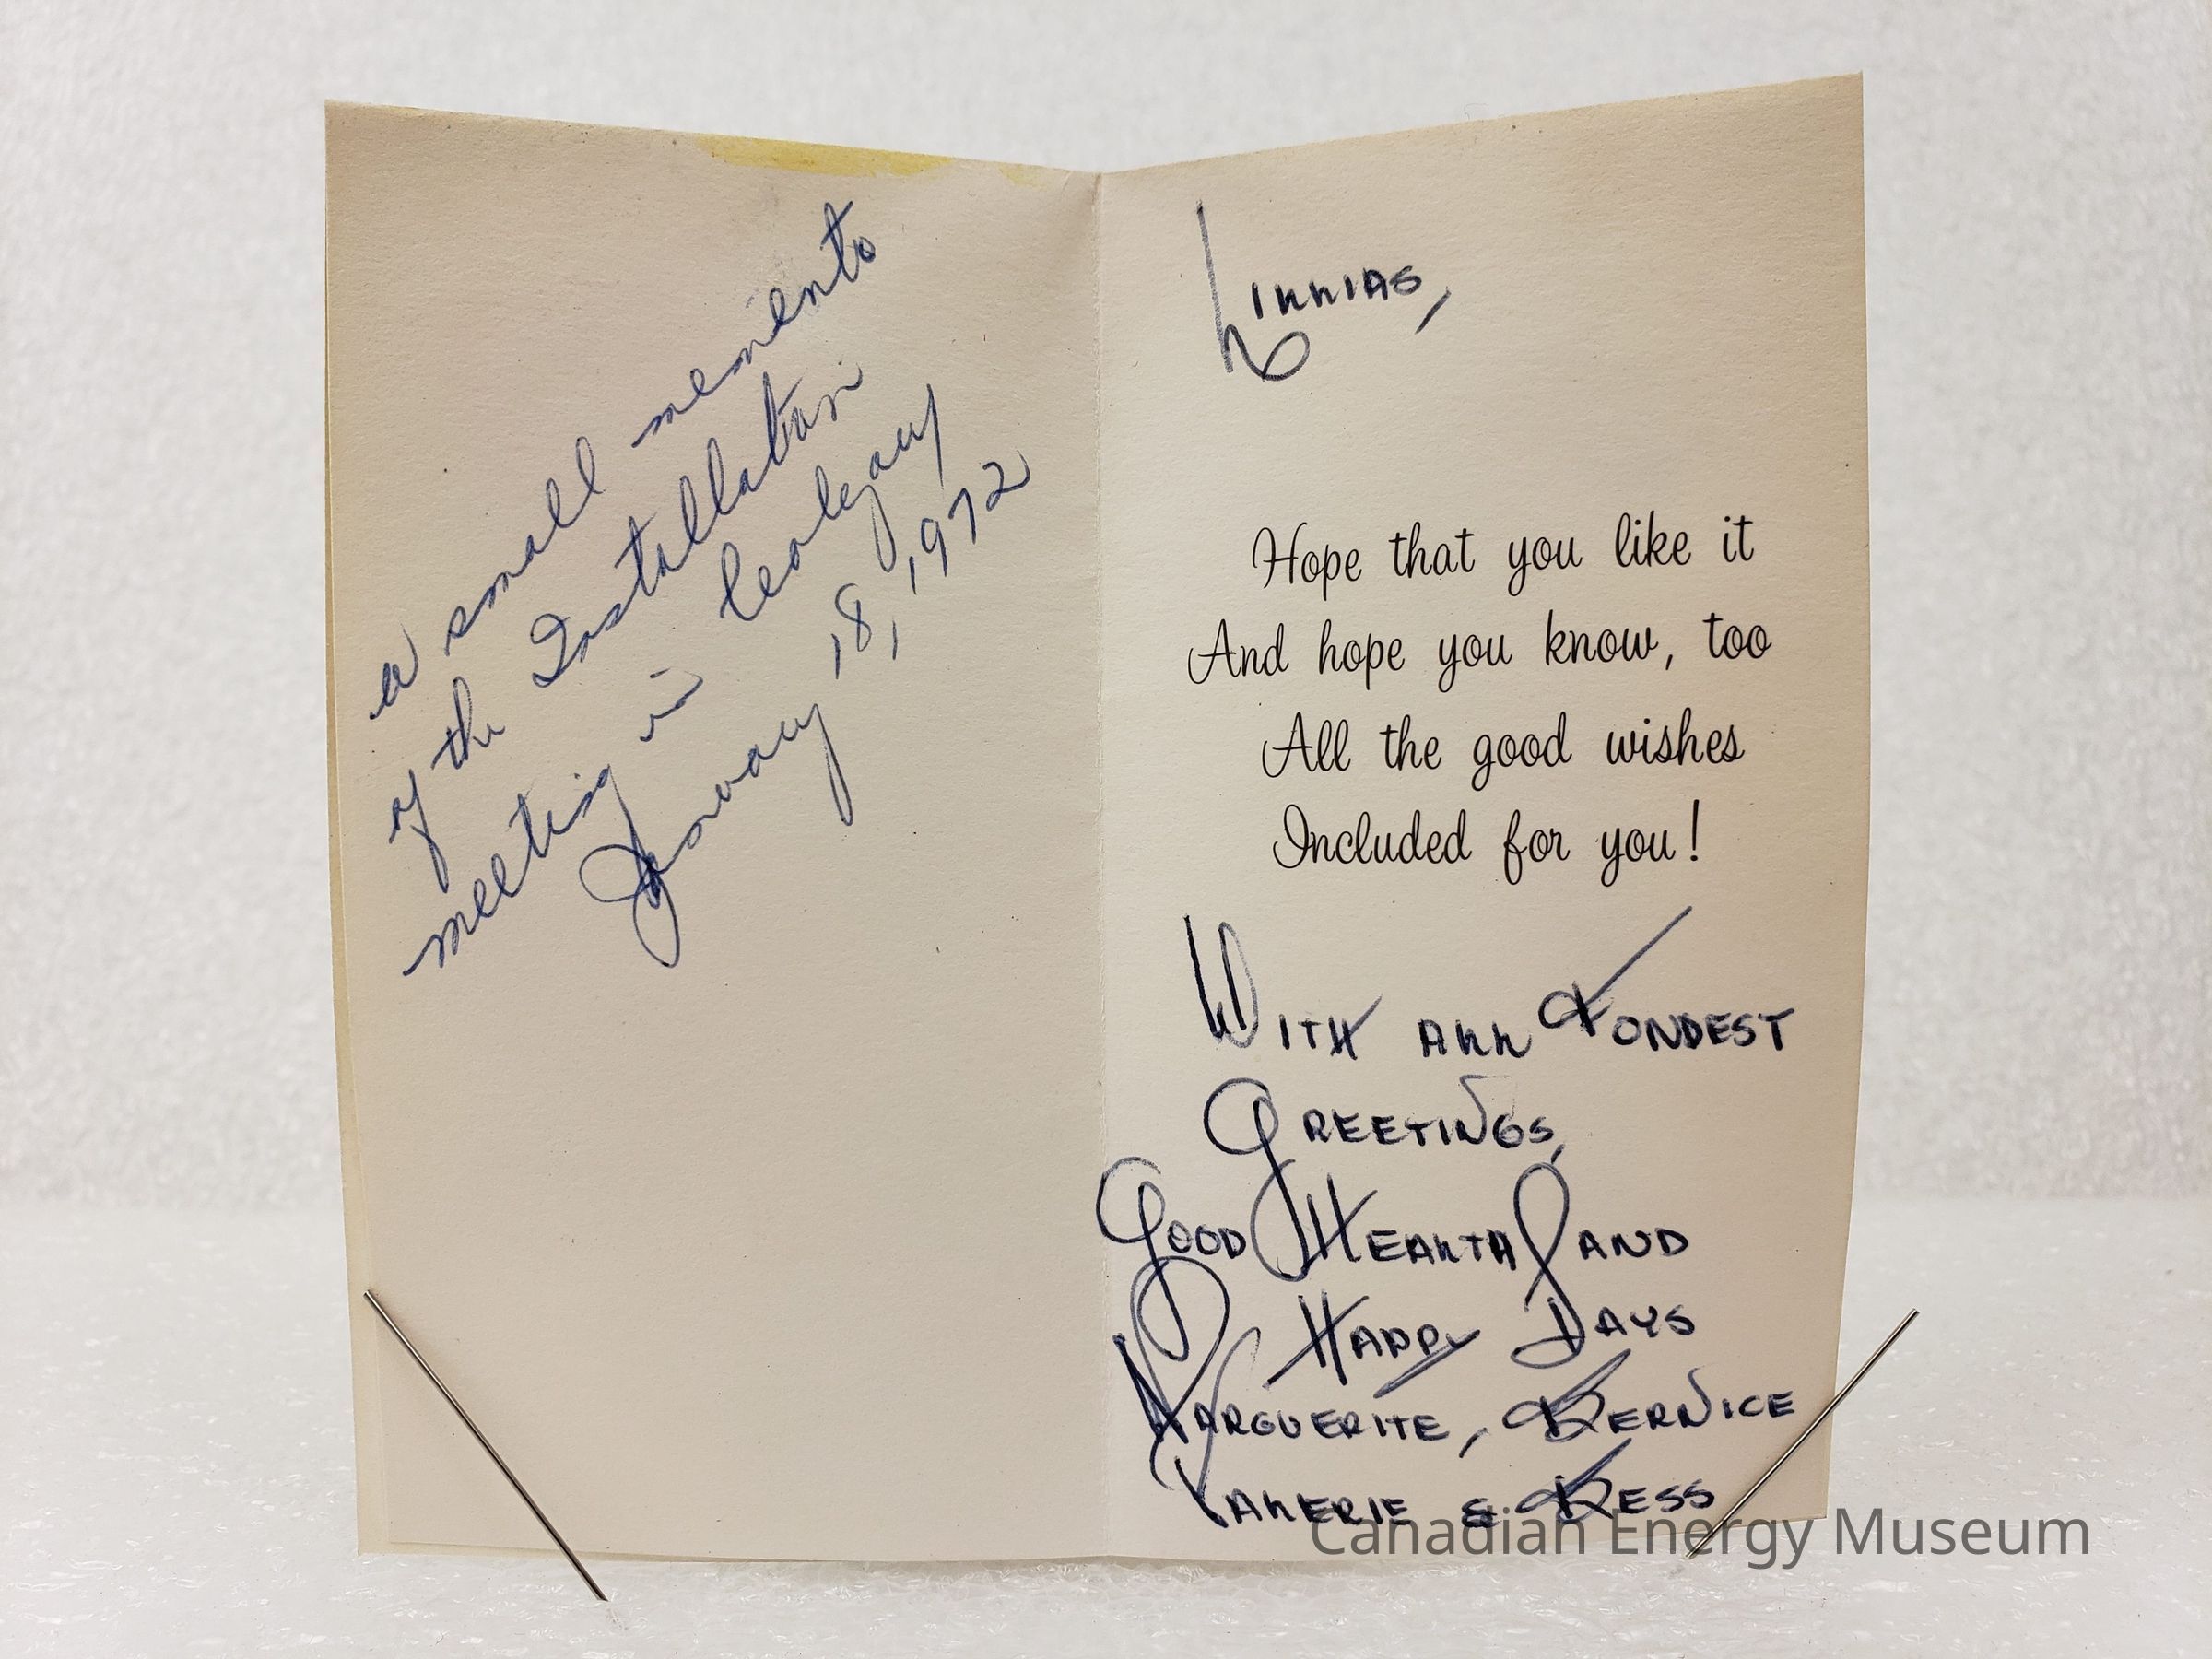 a small memento
of the Installation
meeting in Calgary
January 18, 1972
LILLIAS,
Hope that you like it
And hope you know, too
All the good wishes
Included for you!
WITH ALL FONDEST
GREETINGS,
GOOD HEALTH AND
HAPPY DAYS
MARGUERITE, BERNICE
VALERIE & BESS
Canadian Energy Museum